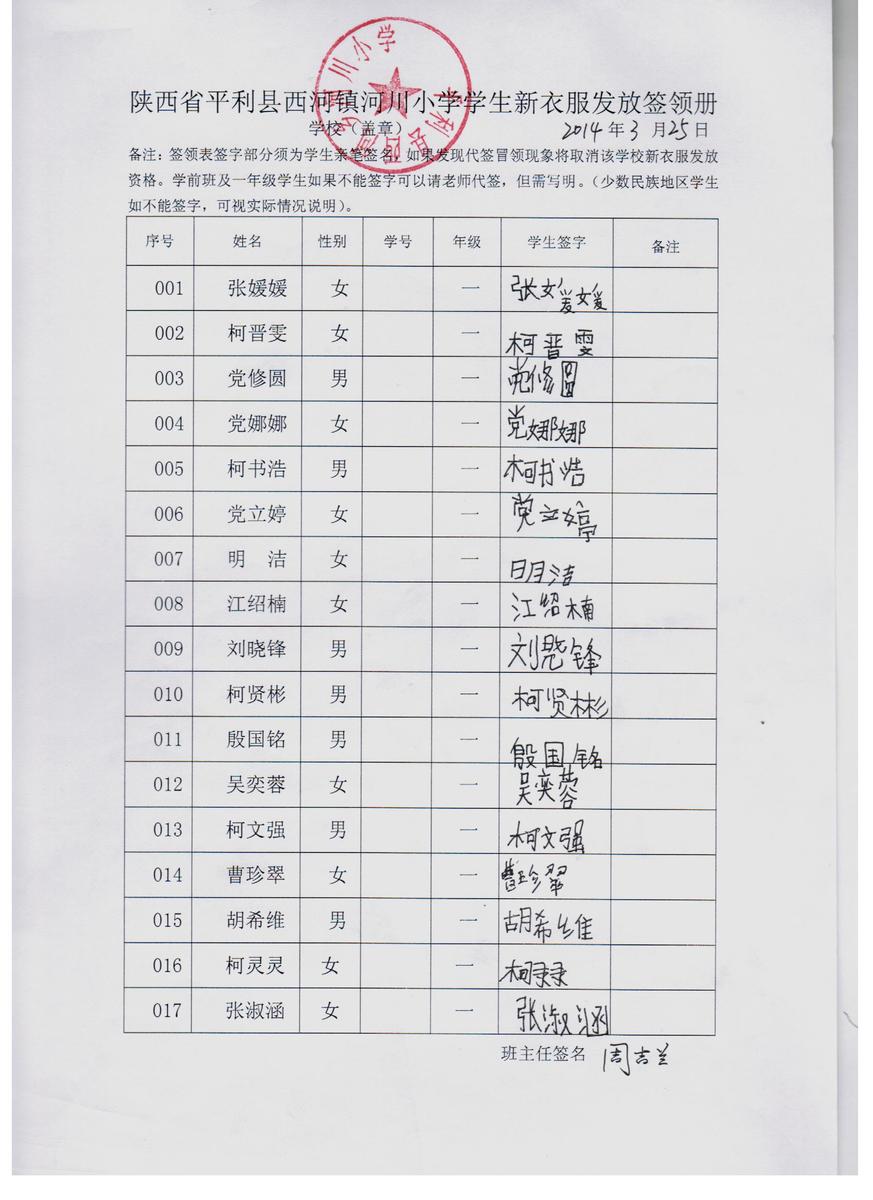 平利县西河乡河川小学
陕西省平利县西河镇河川小学学生新衣服发放签领册
学校（盖章） 2014年3月25日
备注：签领表签字部分须为学生亲笔签名，如果发现代签冒领现象将取消该学校新衣服发放
资格。学前班及一年级学生如果不能签字可以请老师代签，但需写明。（少数民族地区学生
如不能签字，可视实际情况说明）。
序号 姓名 性别 学号 年级 学生签字 备注
001 张媛媛 女 一 张媛媛
002 柯晋雯 女 一 柯晋雯
003 党修圆 男 一 党修圆
004 党娜娜 女 一 党娜娜
005 柯书浩 男 一 柯书浩
006 党立婷 女 一 党立婷
007 明 洁 女 一 明洁
008 江绍楠 女 一 江绍楠
009 刘晓锋 男 一 刘晓锋
010 柯贤彬 男 一 柯贤彬
011 殷国铭 男 一 殷国铭
012 吴奕蓉 女 一 吴奕蓉
013 柯文强 男 一 柯文强
014 曹珍翠 女 一 曹珍翠
015 胡希维 男 一 胡希维
016 柯灵灵 女 一 柯灵灵
017 张淑涵 女 一 张淑涵
班主任签名 周吉兰